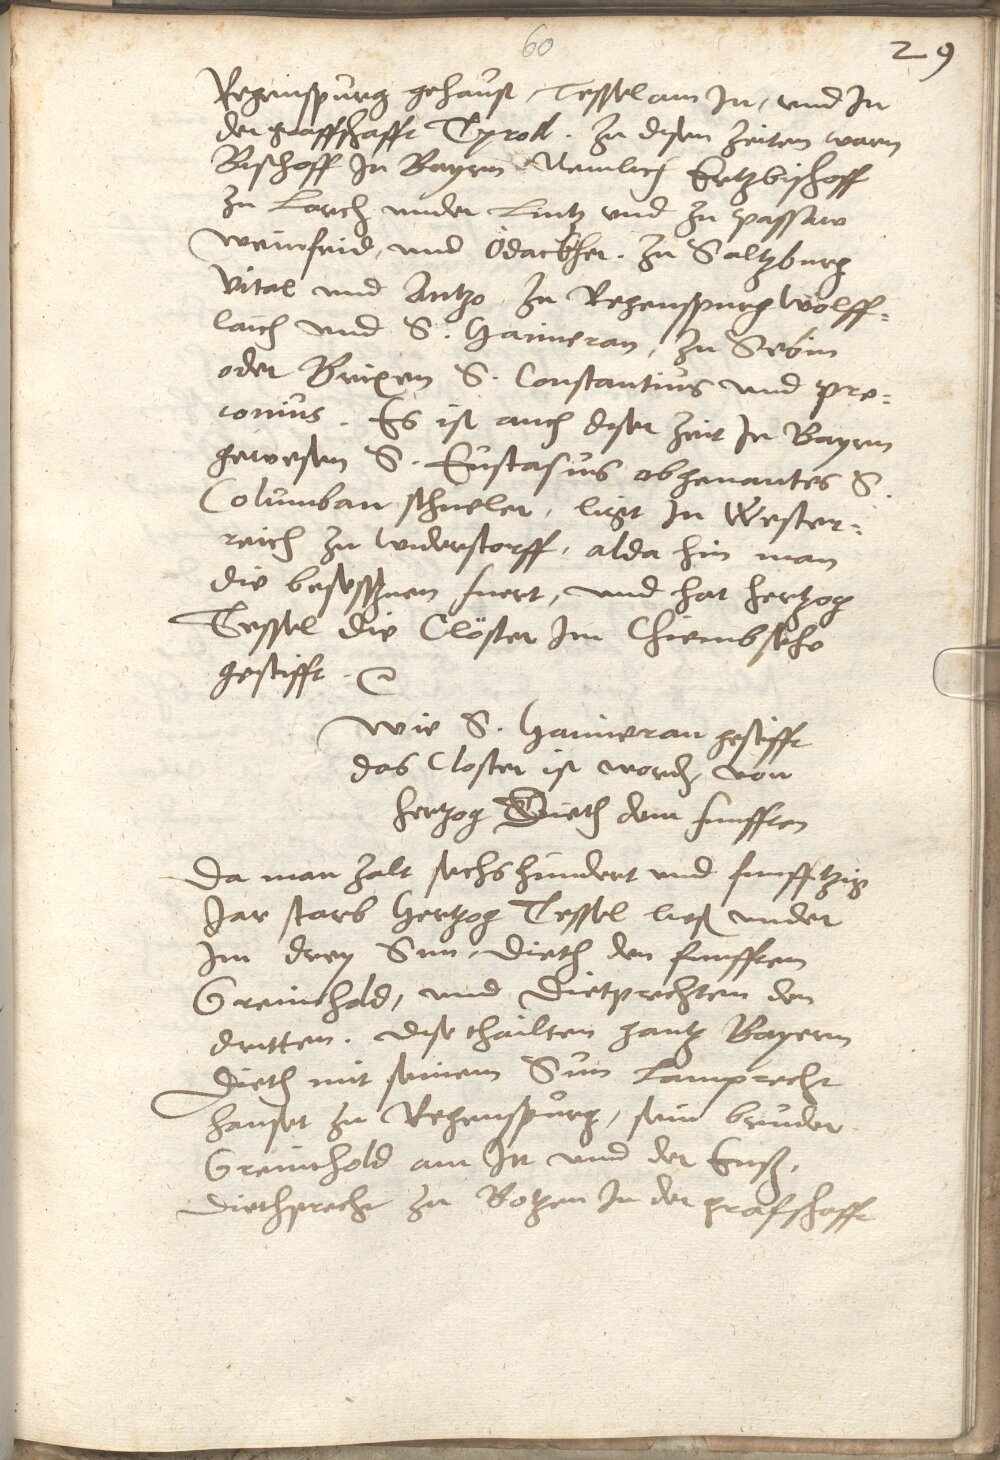 60
29
Regenspurg gehaust, Tessel am In, und In
der graffschafft Tyroll. Zu disen Zeiten warn
Bischoff In Bayrn Nemlich Ertzbischoff
zu Lorch under Lintz und zu passaw
Weinfrid, und Odackher. Zu Saltzburg
Vital und Antzo. Zu Regenspurg Wolff-
laich und S. Haimeran, Zu Sebin
oder Brixen S. Constantius und pro-
conius. Es ist auch diser Zeit In Bayrn
gewesen S. Eustasius obgenantes S.
Columban schueler, ligt In Wester-
reich zu Widerstorff, alda hin man
die besessznen fuert, und hat hertzog
Tessel die Clöster Im Chiembsehe
gestifft.
Wie S. Haimeran gestifft
das Closter ist word, von
hertzog Dieth dem funfften
Da man zalt sechshundert und funfftzig
Jar starb Hertzog Tessel ließ under
Im drey Sun, Dieth den funfften
Greimhold, und Dietprechten den
dritten. dise thailten gantz Bayern
Dieth mit seinem Sun Lamprecht
hauset zu Regenspurg, sein bruder
Greimhold am In und der Enß,
Diethprecht zu Botzen In der grafschafft